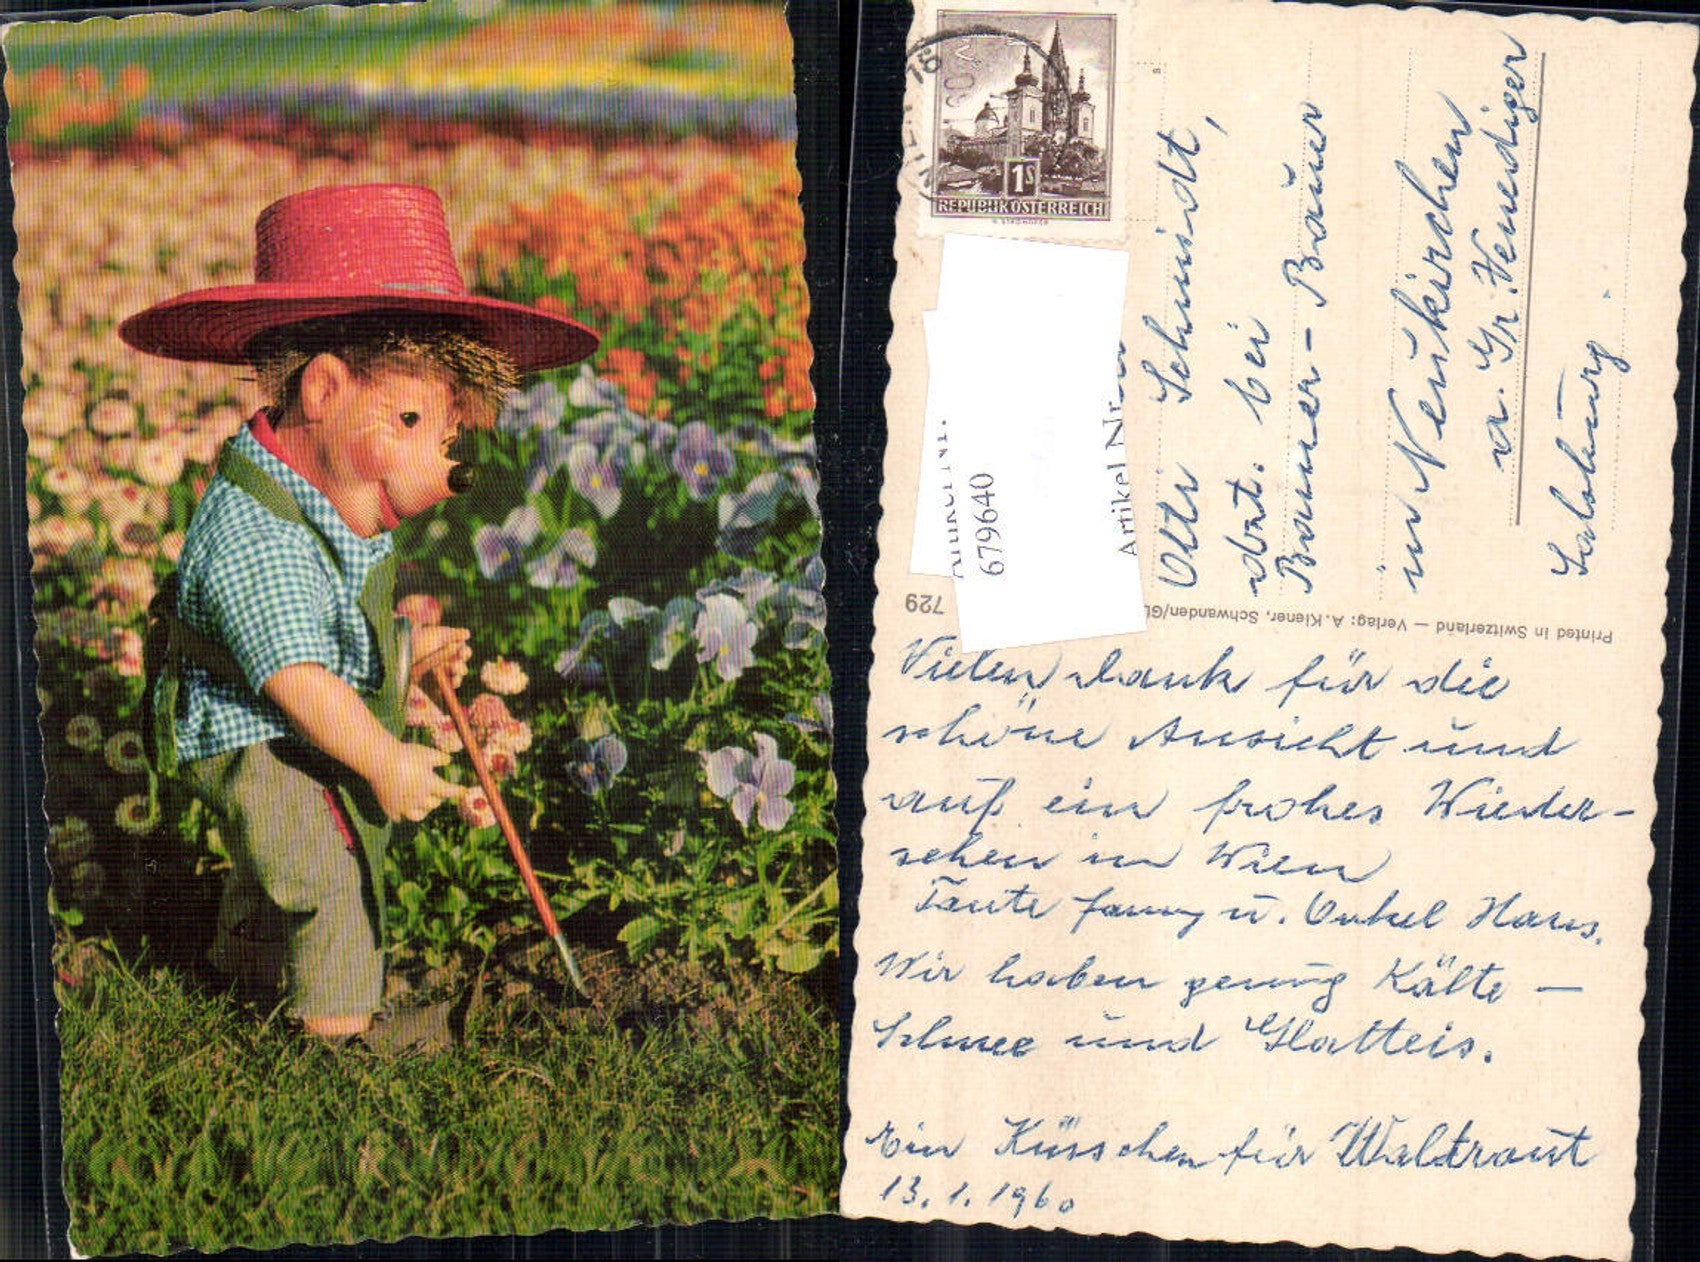 WIEN
1S
REPUBLIK ÖSTERREICH
Artikel Nr.
6796640
Artikel Nr.
729
Printed in Switzerland — Verlag: A. Kiener, Schwanden/GL
Otti Schmidt,
dzt. bei
Bauer-Bäuer
in Neukirchen
a. Gr. Venediger
Salzburg.
Vielen Dank für die
schöne Ansicht und
auf ein frohes Wieder-
sehen in Wien
Tante Fanny u. Onkel Hans.
Wir haben genug Kälte —
Schnee und Glatteis.
Ein Küsschen für Waltraut
13.1.1960